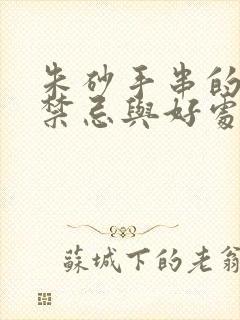 朱砂手串的
禁忌與好處
蘇城下的老翁